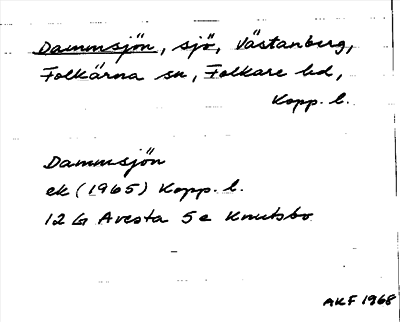 Dammsjön, sjö, Västanberg,
Folkärna sn, Folkare hd,
Kopp. l.
Dammsjön
ek (1965) Kopp. l.
12 G Avesta 5 e Knutsbo
AKF 1968